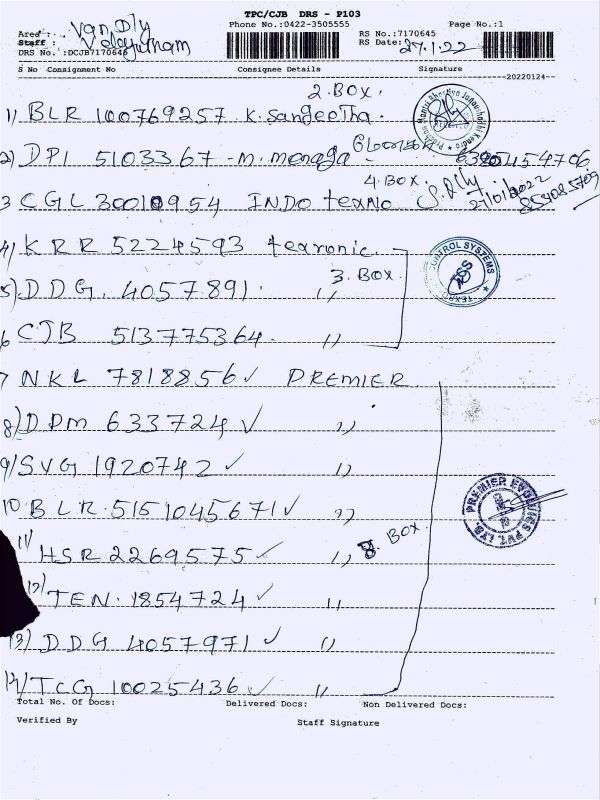 TPC/CJB DRS - P103
Area : Van Dly
Phone No.:0422-3505555
Page No.:1
Staff : Velayutham
RS No.:7170645
DRS No.:DCJB7170646
RS Date: 27.1.22
S No Consignment No Consignee Details Signature
20220124
2. BOX.
1) BLR 100769257 K. Sangeetha.
2) DPI 5103367 - M. Menaga
4. BOX.
27/01/2022
3 CGL 30010954 INDO texno
4) KRR 5224593 texronic.
3. BOX.
5) DDG. 4057891. ,,
6 CJB 513775364. ,,
7 NKL 7818856 ✓ PREMIER
8) DPM 633724 ✓ ,,
9) SVG 1920742 ✓ ,,
PREMIER EVOLVICS PVT. LTD.
10 BLR. 5151045671 ✓ ,,
8. BOX.
11) HSR 2269575 ✓ ,,
12) TEN. 1854724 ✓ ,,
13) DDG 4057971 ✓ ,,
14) TCG 10025436 ✓ ,,
Total No. Of Docs: Delivered Docs: Non Delivered Docs:
Verified By Staff Signature